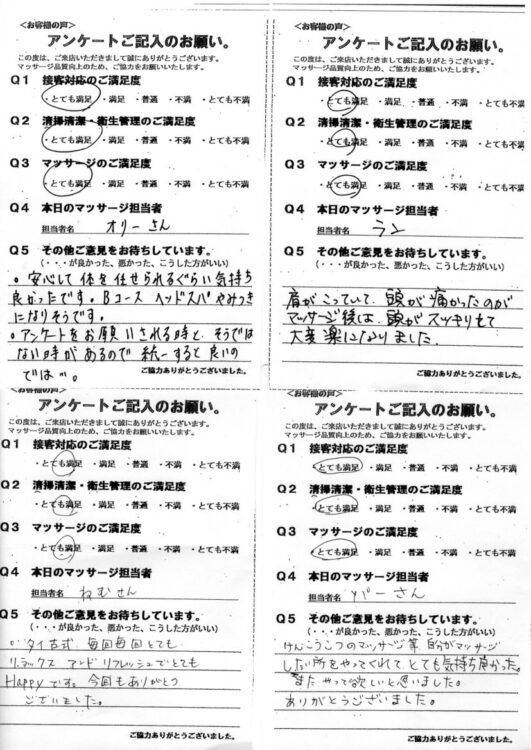 <お客様の声>
アンケートご記入のお願い。
この度は、ご来店いただきまして誠にありがとうございます。
マッサージ品質向上のため、ご協力をお願いいたします。
Q1 接客対応のご満足度
・とても満足 ・満足 ・普通 ・不満 ・とても不満
Q2 清掃清潔・衛生管理のご満足度
・とても満足 ・満足 ・普通 ・不満 ・とても不満
Q3 マッサージのご満足度
・とても満足 ・満足 ・普通 ・不満 ・とても不満
Q4 本日のマッサージ担当者
担当者名 オリーさん
Q5 その他ご意見をお待ちしています。
(・・・が良かった、悪かった、こうした方がいい)
。安心して体を任せられるぐらい気持ち
良かったです。Bコース ヘッドスパやみつき
になりそうです。
。アンケートをお願いされる時と、そうでは
ない時があるので統一すると良いの
では…。
ご協力ありがとうございました。
<お客様の声>
アンケートご記入のお願い。
この度は、ご来店いただきまして誠にありがとうございます。
マッサージ品質向上のため、ご協力をお願いいたします。
Q1 接客対応のご満足度
・とても満足 ・満足 ・普通 ・不満 ・とても不満
Q2 清掃清潔・衛生管理のご満足度
・とても満足 ・満足 ・普通 ・不満 ・とても不満
Q3 マッサージのご満足度
・とても満足 ・満足 ・普通 ・不満 ・とても不満
Q4 本日のマッサージ担当者
担当者名 ラン
Q5 その他ご意見をお待ちしています。
(・・・が良かった、悪かった、こうした方がいい)
肩がこっていて、頭が痛かったのが
マッサージ後は、頭がスッキリして
大変楽になりました。
ご協力ありがとうございました。
<お客様の声>
アンケートご記入のお願い。
この度は、ご来店いただきまして誠にありがとうございます。
マッサージ品質向上のため、ご協力をお願いいたします。
Q1 接客対応のご満足度
・とても満足 ・満足 ・普通 ・不満 ・とても不満
Q2 清掃清潔・衛生管理のご満足度
・とても満足 ・満足 ・普通 ・不満 ・とても不満
Q3 マッサージのご満足度
・とても満足 ・満足 ・普通 ・不満 ・とても不満
Q4 本日のマッサージ担当者
担当者名 ねむさん
Q5 その他ご意見をお待ちしています。
(・・・が良かった、悪かった、こうした方がいい)
タイ古式、毎回毎回とても
リラックス アンド リフレッシュでとても
Happyです。今回もありがとう
ございました。
ご協力ありがとうございました。
<お客様の声>
アンケートご記入のお願い。
この度は、ご来店いただきまして誠にありがとうございます。
マッサージ品質向上のため、ご協力をお願いいたします。
Q1 接客対応のご満足度
・とても満足 ・満足 ・普通 ・不満 ・とても不満
Q2 清掃清潔・衛生管理のご満足度
・とても満足 ・満足 ・普通 ・不満 ・とても不満
Q3 マッサージのご満足度
・とても満足 ・満足 ・普通 ・不満 ・とても不満
Q4 本日のマッサージ担当者
担当者名 パーさん
Q5 その他ご意見をお待ちしています。
(・・・が良かった、悪かった、こうした方がいい)
けんこうこつのマッサージ等 自分がマッサージ
したい所をやってくれてとても気持ち良かった。
またやって欲しいと思いました。
ありがとうございました。
ご協力ありがとうございました。